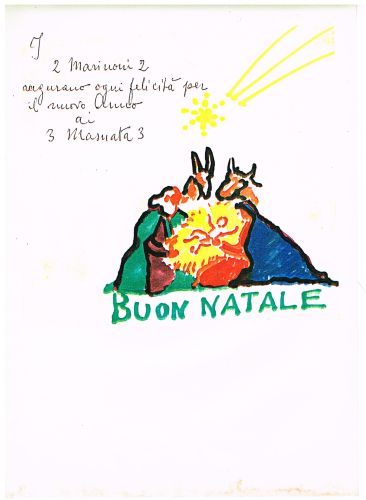 I
2 Marinoni 2
augurano ogni felicità per
il nuovo Anno
ai
3 Masnata 3
BUON NATALE